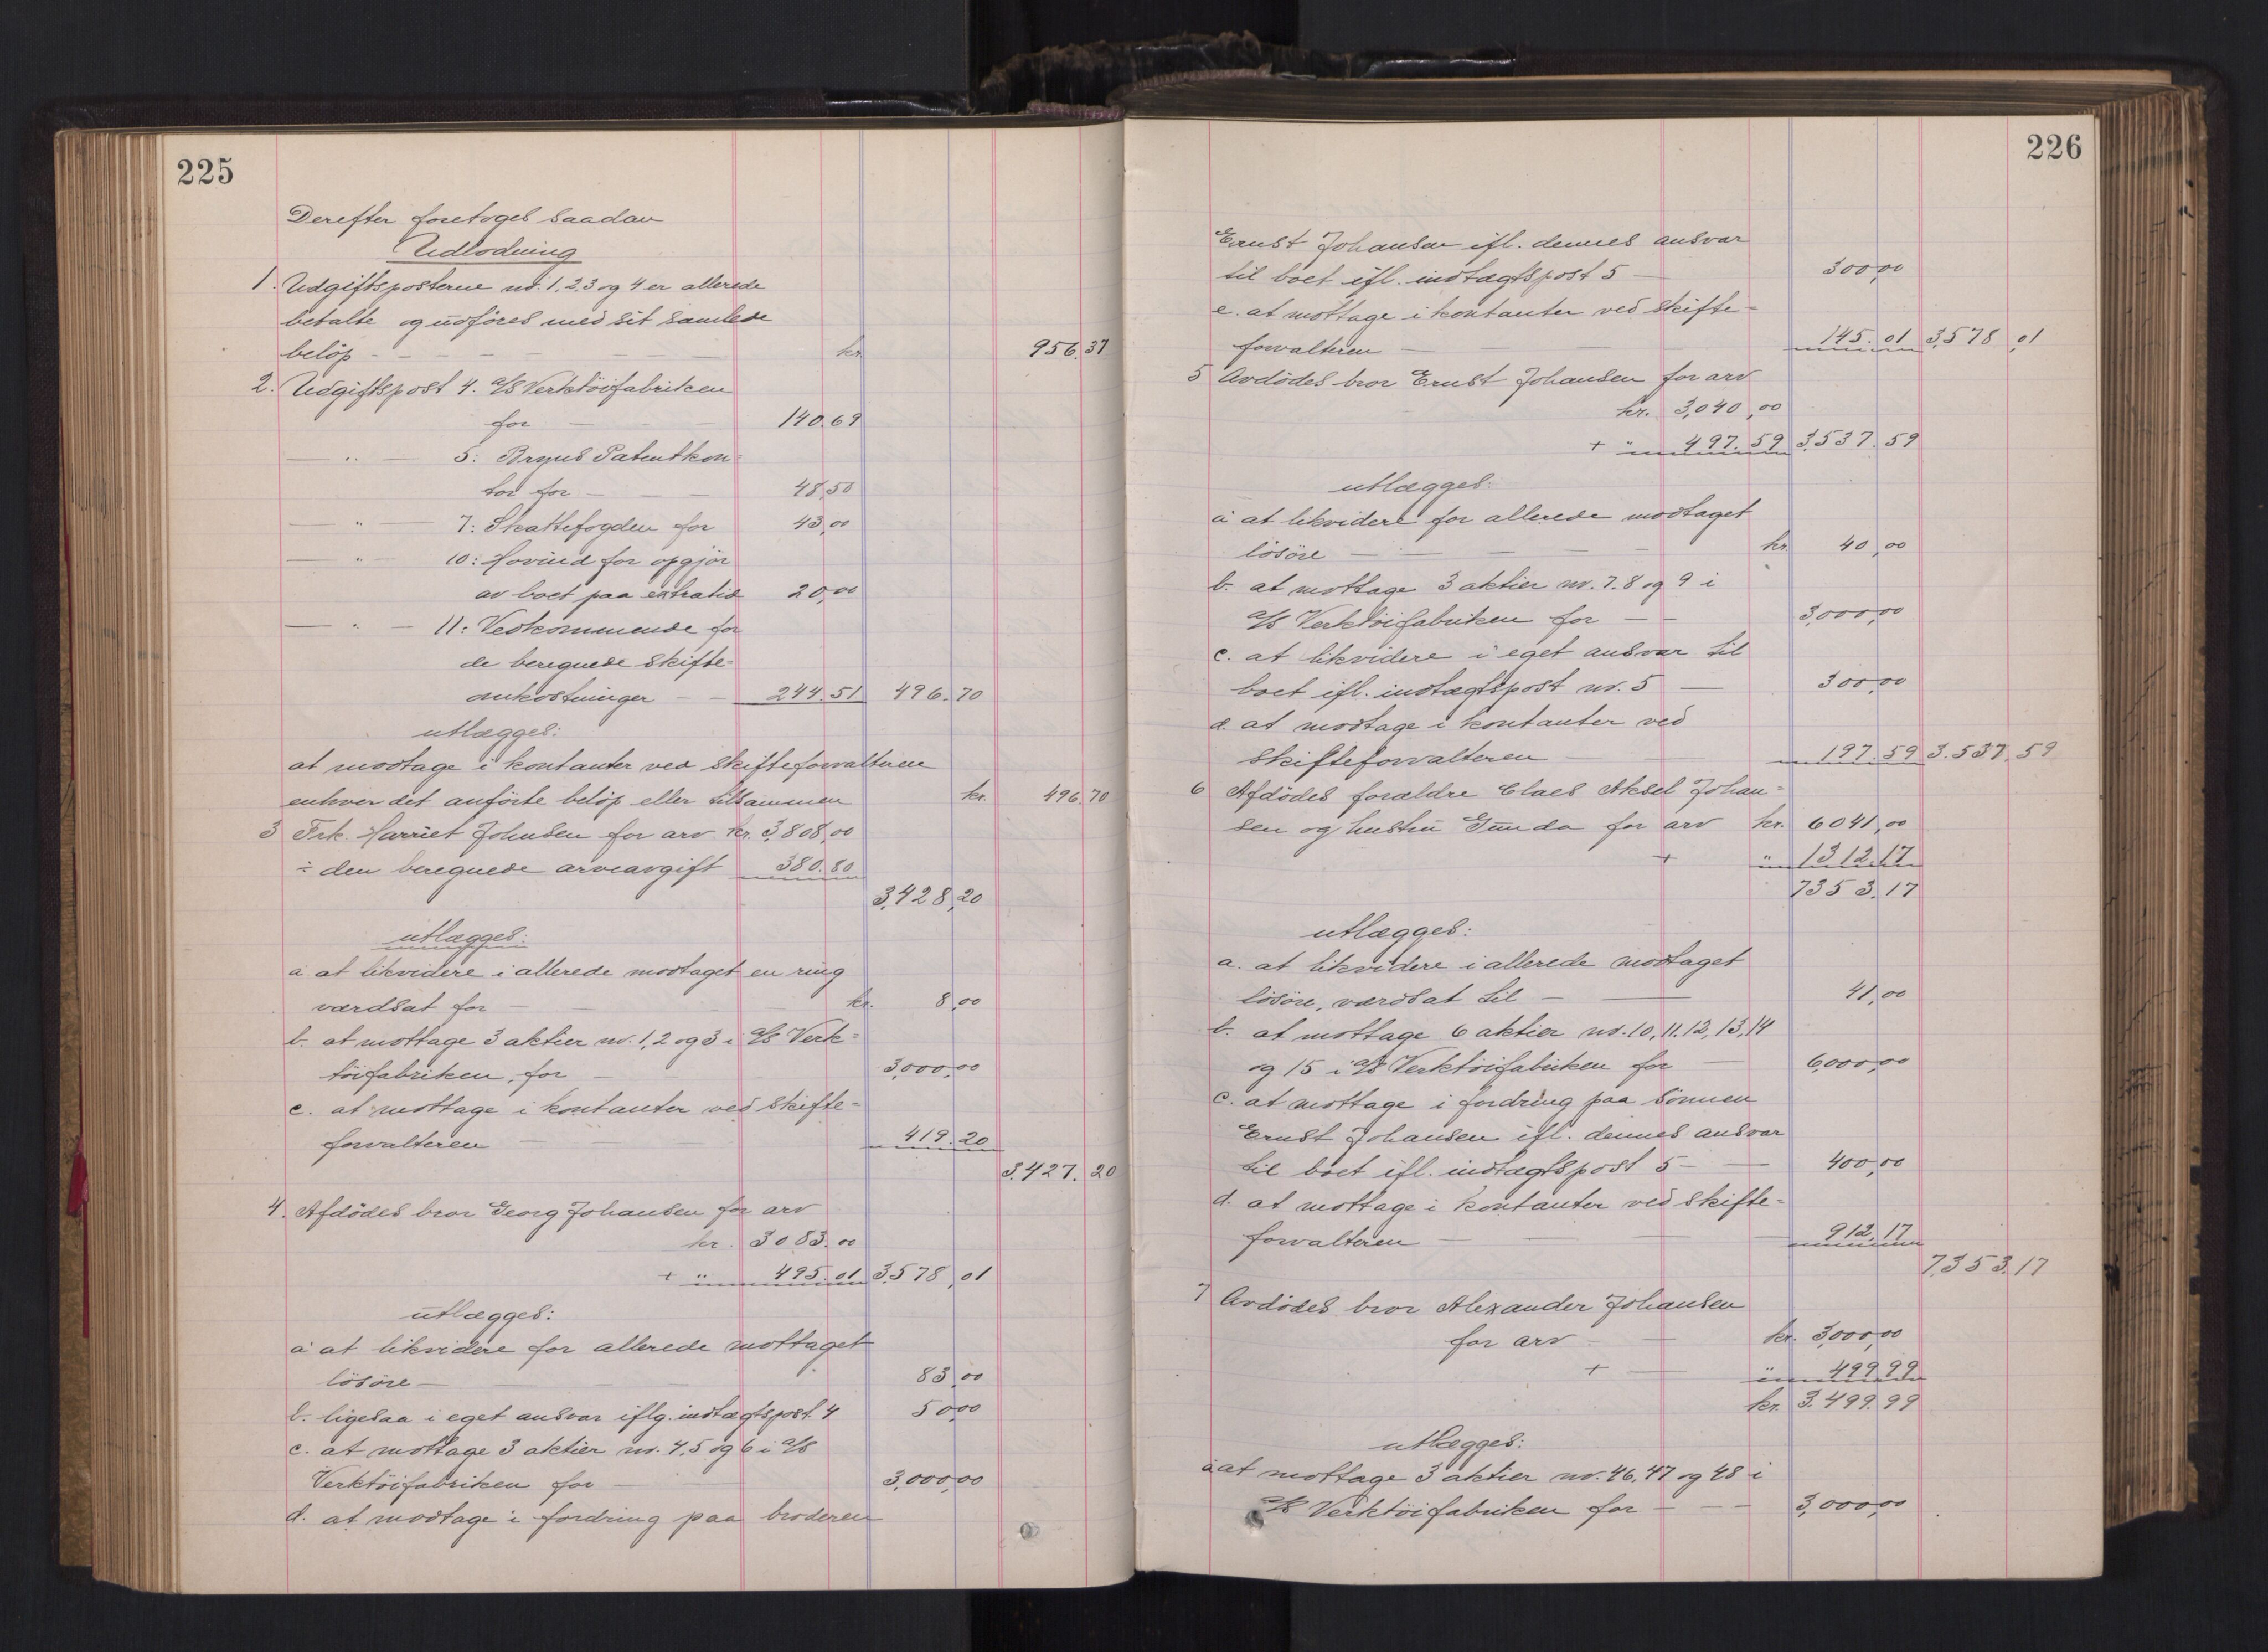 225
Derefter foretoges saadan
Udlodning
1. Udgiftsposterne no. 1, 2, 3 og 4 er allerede
betalte og udføres med sit samlede
beløp - - - - - kr. 956.37
2. Udgiftspost 4. A/S Verktöifabriken
for - - 140.69
— " — 5: Bryns Patentkon=
tor for - - - 48,50
— " — 7: Skattefogden for 43,00
— " — 10: Hovind for opgjör
av boet paa extratid 20,00
— " — 11: Vedkommende for
de beregnede skifte=
omkostninger - - 244.51 496.70
utlægges:
at modtage i kontanter ved skifteforvalteren
enhver det anförte belöp eller tilsammen kr. 496.70
3 Frk. Harriet Johnsen for arv kr. 3,808,00
÷ den beregnede arveavgift 380.80
3,428,20
utlægges:
a. at likvidere i allerede modtaget en ring
værdsat for - kr. 8,00
b. at mottage 3 aktier no. 1, 2 og 3 i A/S Verk=
töifabriken, for - 3,000,00
c. at mottage i kontanter ved skifte=
forvalteren - 419.20
3.427.20
4. Afdödes bror Georg Johansen for arv
kr. 3083.00
+ " 495.01 3,578,01
utlægges:
a. at likvidere for allerede mottaget
lösöre - 83,00
b. ligesaa i eget ansvar iflg. indtægtspost 4 50,00
c. at mottage 3 aktier no. 4, 5 og 6 i A/S
Verktöifabriken for - 3,000,00
d. at modtage i fordring paa broderen
226
Ernst Johansen ifl. dennes ansvar
til boet ifl. indtægtspost 5 - 300,00
e. at mottage i kontanter ved skifte=
forvalteren - 145.01 3,578,01
5 Avdödes bror Ernst Johansen for arv
kr. 3,040,00
+ " 497.59 3,537.59
utlægges:
a at likvidere for allerede modtaget
lösöre - - - - - kr. 40,00
b. at mottage 3 aktier no. 7. 8 og 9 i
A/S Verktöifabriken for - - 3,000,00
c. at likvidere i eget ansvar til
boet ifl. indtægtspost no. 5 - 300,00
d. at modtage i kontanter ved
skifteforvalteren - 197.59 3.537,59
6 Afdödes forældre Claes Aksel Johan=
sen og hustru Gunda for arv kr. 6041,00
+ " 1312.17
7353.17
utlægges:
a. at likvidere i allerede modtaget
lösöre, værdsat til - - 41,00
b. at mottage 6 aktier no. 10, 11. 12, 13, 14
og 15 i A/S Verktöifabriken for - 6,000,00
c. at mottage i fordring paa sönnen
Ernst Johansen ifl. dennes ansvar
til boet ifl. indtægtspost 5 - - 400,00
d. at mottage i kontanter ved skifte=
forvalteren - - - 912.17
7,353.17
7 Avdödes bror Alexander Johansen
for arv - - kr. 3,000,00
+ - " 499.99
kr. 3.499.99
utlægges:
a at mottage 3 aktier no. 46, 47 og 48 i
A/S Verktöifabriken for - - - 3,000,00